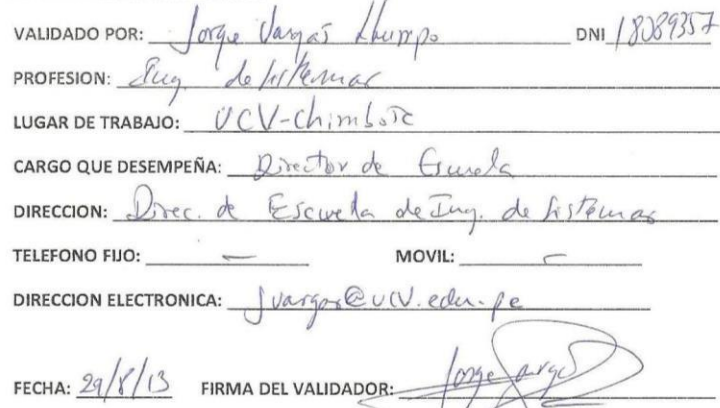 VALIDADO POR: Jorge Vargas DNI 18089357
PROFESION: Ing. de Sistemas
LUGAR DE TRABAJO: UCV-Chimbote
CARGO QUE DESEMPEÑA: Director de Escuela
DIRECCION: Direc. de Escuela de Ing. de Sistemas
TELEFONO FIJO: — MOVIL: —
DIRECCION ELECTRONICA: jvargas@ucv.edu.pe
FECHA: 29/8/13 FIRMA DEL VALIDADOR: Jorge Vargas